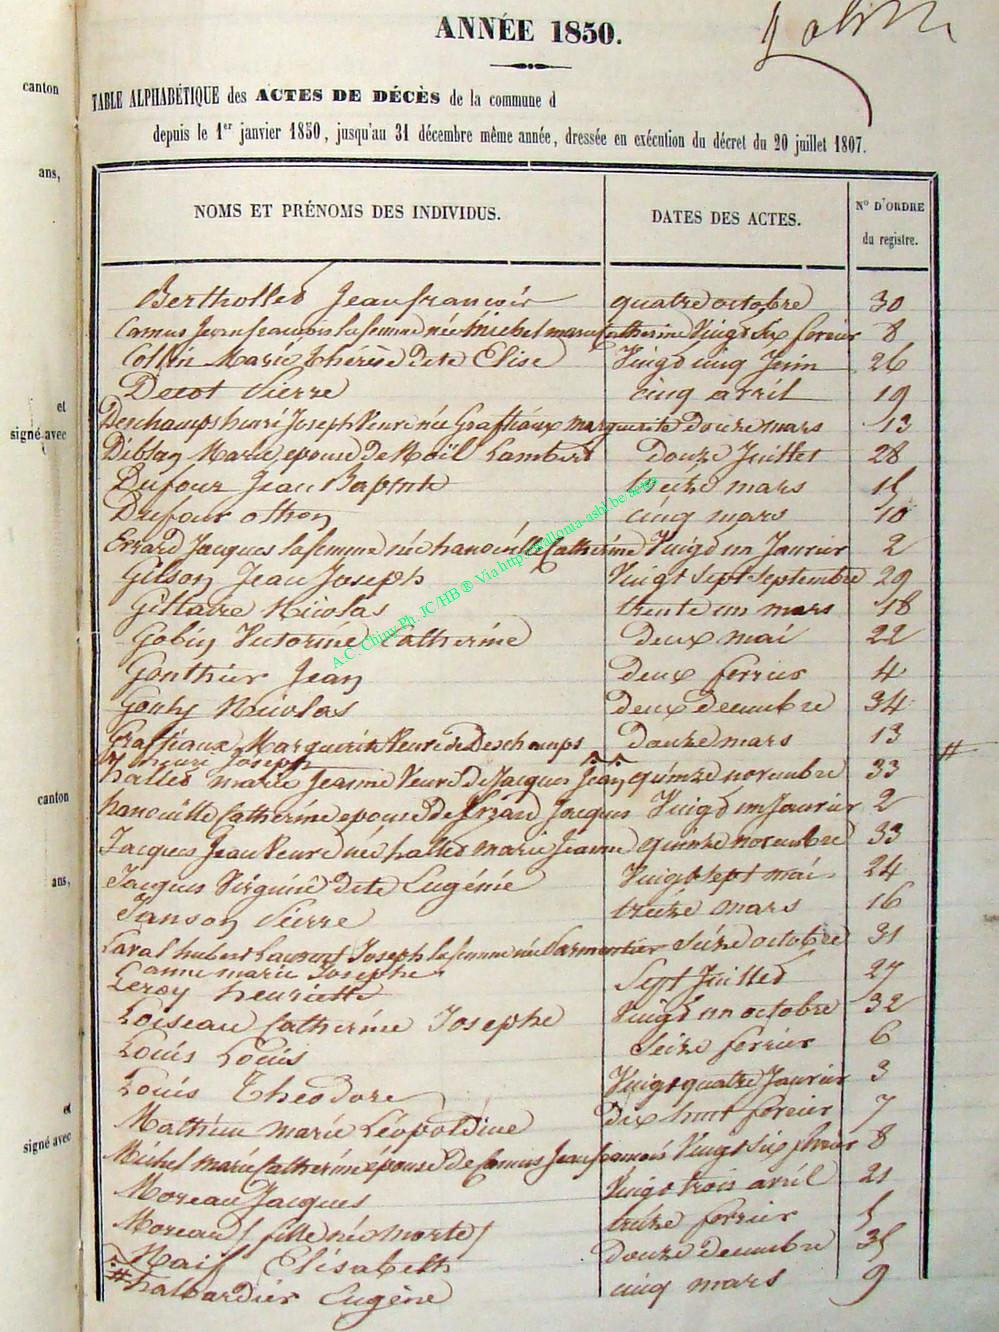 ANNÉE 1850.
TABLE ALPHABÉTIQUE des ACTES DE DÉCÈS de la commune d
depuis le 1er janvier 1850, jusqu'au 31 décembre même année, dressée en exécution du décret du 20 juillet 1807.
canton
ans,
et
signé avec
canton
ans,
et
signé avec
NOMS ET PRÉNOMS DES INDIVIDUS. DATES DES ACTES. No D'ORDRE du registre.
Berthollet Jean françois quatre octobre 30
Camus Jean françois la femme née Michel marie Catherine Vingt six fevrier 8
Collin Marie thérèse dite Elise Vingt cinq Juin 26
Decot Pierre cinq avril 19
Deschamps henri Joseph Veuve née Graftiaux marguerite douze mars 13
Marie epouse De Noël Lambert Douze Juillet 28
Dufour Jean Baptiste treize mars 15
Dufour othon cinq mars 10
Errard Jacques la femme née hanoiville Catherine Vingt un Janvier 2
Gilson Jean Joseph Vingt sept septembre 29
Giltaire Nicolas trente un mars 18
Gobin Victorine Catherine Deux mai 22
Gonthier Jean Deux fevrier 4
Gouly Nicolas Deux decembre 34
Graftiaux Marguerite Veuve de Deschamps Douze mars 13
henri Joseph
hallet marie Jeanne Veuve De Jacques Jean quinze novembre 33
hanoiville Catherine epouse De Errard Jacques Vingt un Janvier 2
Jacques Jean Veuve née hallet marie Jeanne quinze novembre 33
Jacques Virginie dite Eugénie Vingt sept mai 24
Janson Pierre treize mars 16
Laval hubert Laurent Joseph la femme née Parmentier seize octobre 31
anne marie Josephe
Leroy henriette Sept Juillet 27
Loiseau Catherine Josephe Vingt un octobre 32
Louis Louis Seize fevrier 6
Louis Theodore Vingt quatre Janvier 3
Mathieu marie Léopoldine dix huit fevrier 7
Michel marie Catherine épouse De Camus Jean francois Vingt six fevrier 8
Moreau Jacques Vingt trois avril 21
Moreau (fille née morte) treize fevrier 5
Naif Elisabeth Douze decembre 35
# halbardier Eugène cinq mars 9
#
A.C. Chiny Ph. JC/HB ® Via http://wallonia-asbl.be/actes